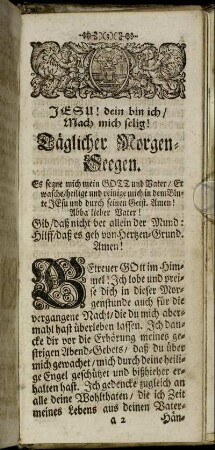 JESU! dein bin ich/
Mach mich selig!
Täglicher Morgen-
Seegen.
Es segne mich mein GOTT und Vater/ Er
wasche/heilige und reinige mich in dem Blu-
te JEsu und durch seinen Geist. Amen!
Abba lieber Vater!
Gib/ daß nicht bet allein der Mund:
Hilff/daß es geh von Hertzen-Grund.
Amen!
GEtreuer GOtt im Him-
mel! Ich lobe und prei-
se dich in dieser Mor-
genstunde auch für die
vergangene Nacht/ die du mich aber-
mahl hast überleben lassen. Ich dan-
cke dir vor die Erhörung meines ge-
strigen Abend-Gebets/ daß du über
mich gewachet/mich durch deine heili-
ge Engel geschützet und bißhieher er-
halten hast. Ich gedencke zugleich an
alle deine Wohlthaten/ die ich Zeit
meines Lebens aus deinen Vater-
a 2 Hän-